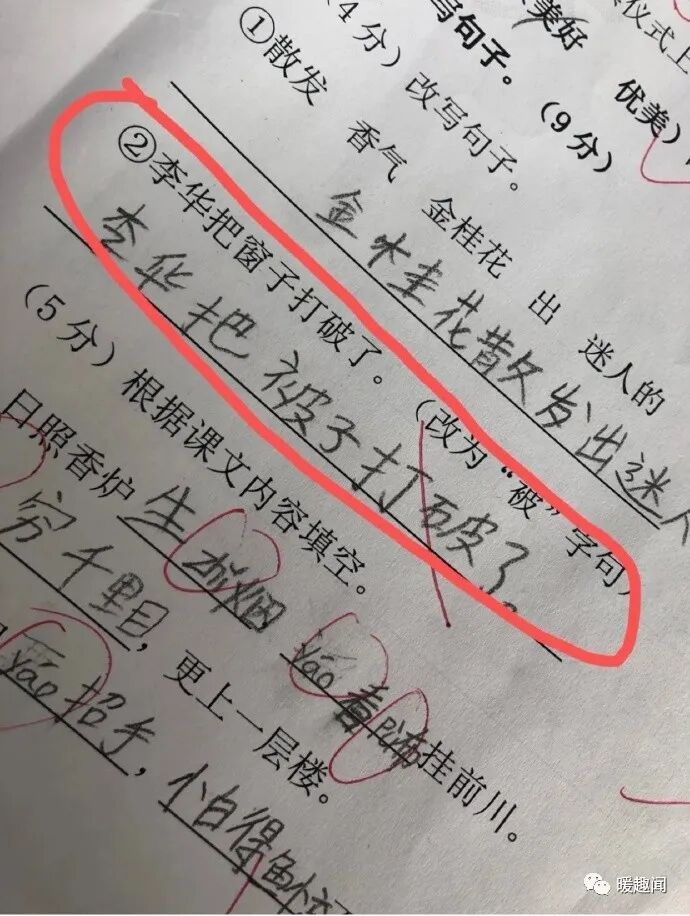 美好 优美)
仪式上
写句子。(9分)
(4分)改写句子。
①散发 香气 金桂花 出 迷人的
金水桂花散发出迷人
②李华把窗子打破了。(改为“被”字句)
李华把被子打破了。
(5分)根据课文内容填空。
日照香炉生 烟 yáo看 挂前川。
穷千里目,更上一层楼。
yáo招手,怕得鱼
暖趣闻